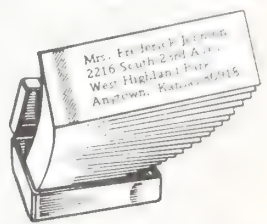 Mrs. Frederick Johnson
2216 South 23rd
West Highland Park
Anytown, Kansas